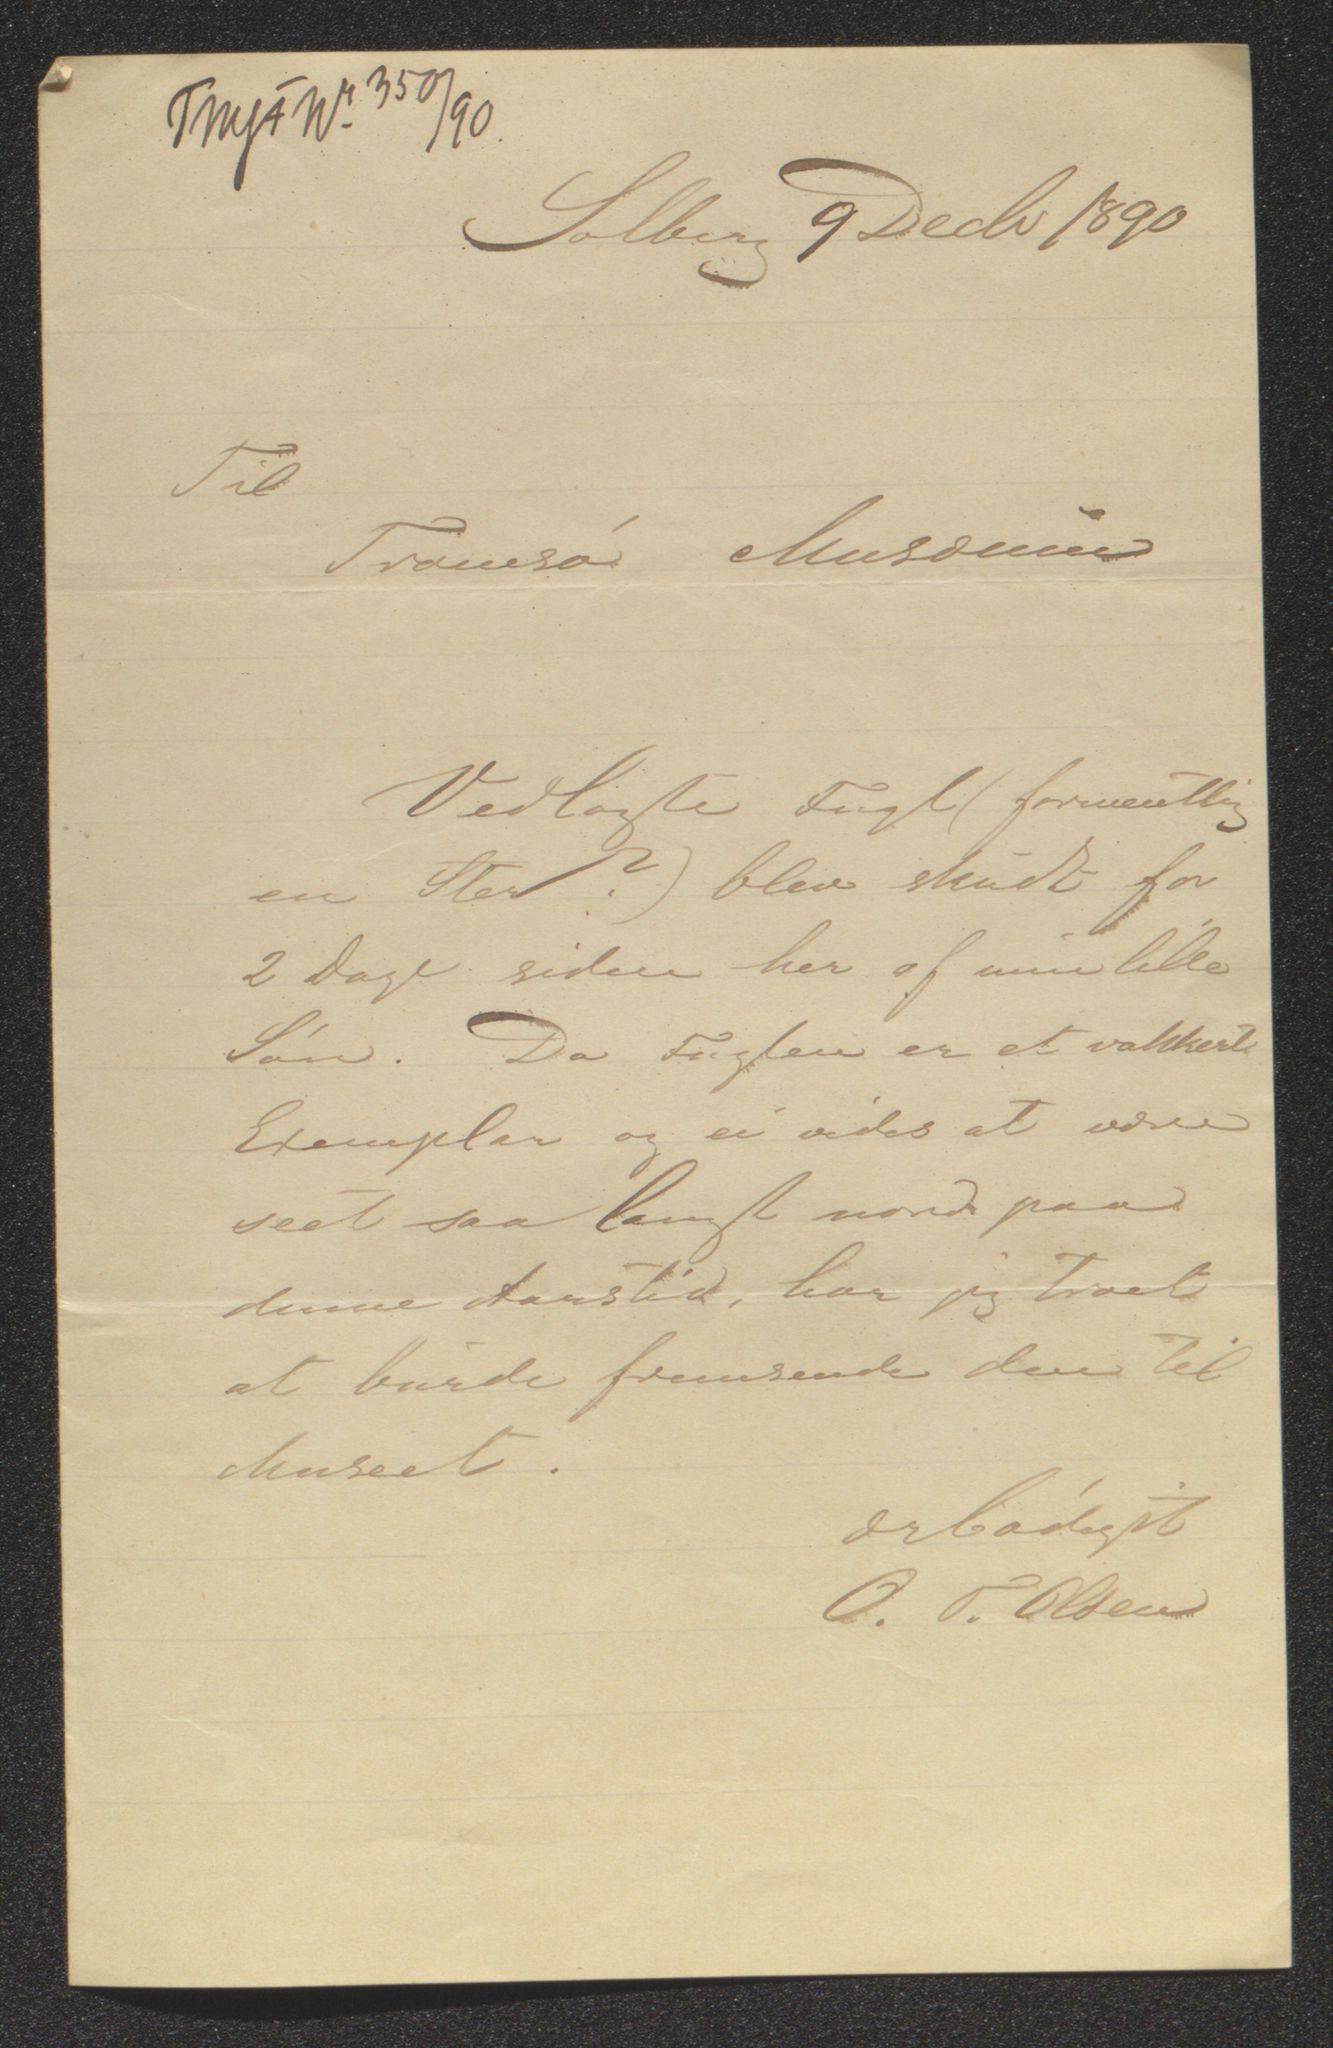 Nr. 350/90.
Solberg 9 Decbr 1890
Til
Tromsø Musæum
Vedlagte Fugl (formentlig
en Stær?) blev skudt for
2 Dage siden her af min lille
Søn. Da Fuglen er et vakkert
Exemplar og ei vides at være
seet saa langt nord paa
denne Aarstid, har jeg troet
at burde fremsende den til
Museet.
ærbødigst
O. T. Olsen